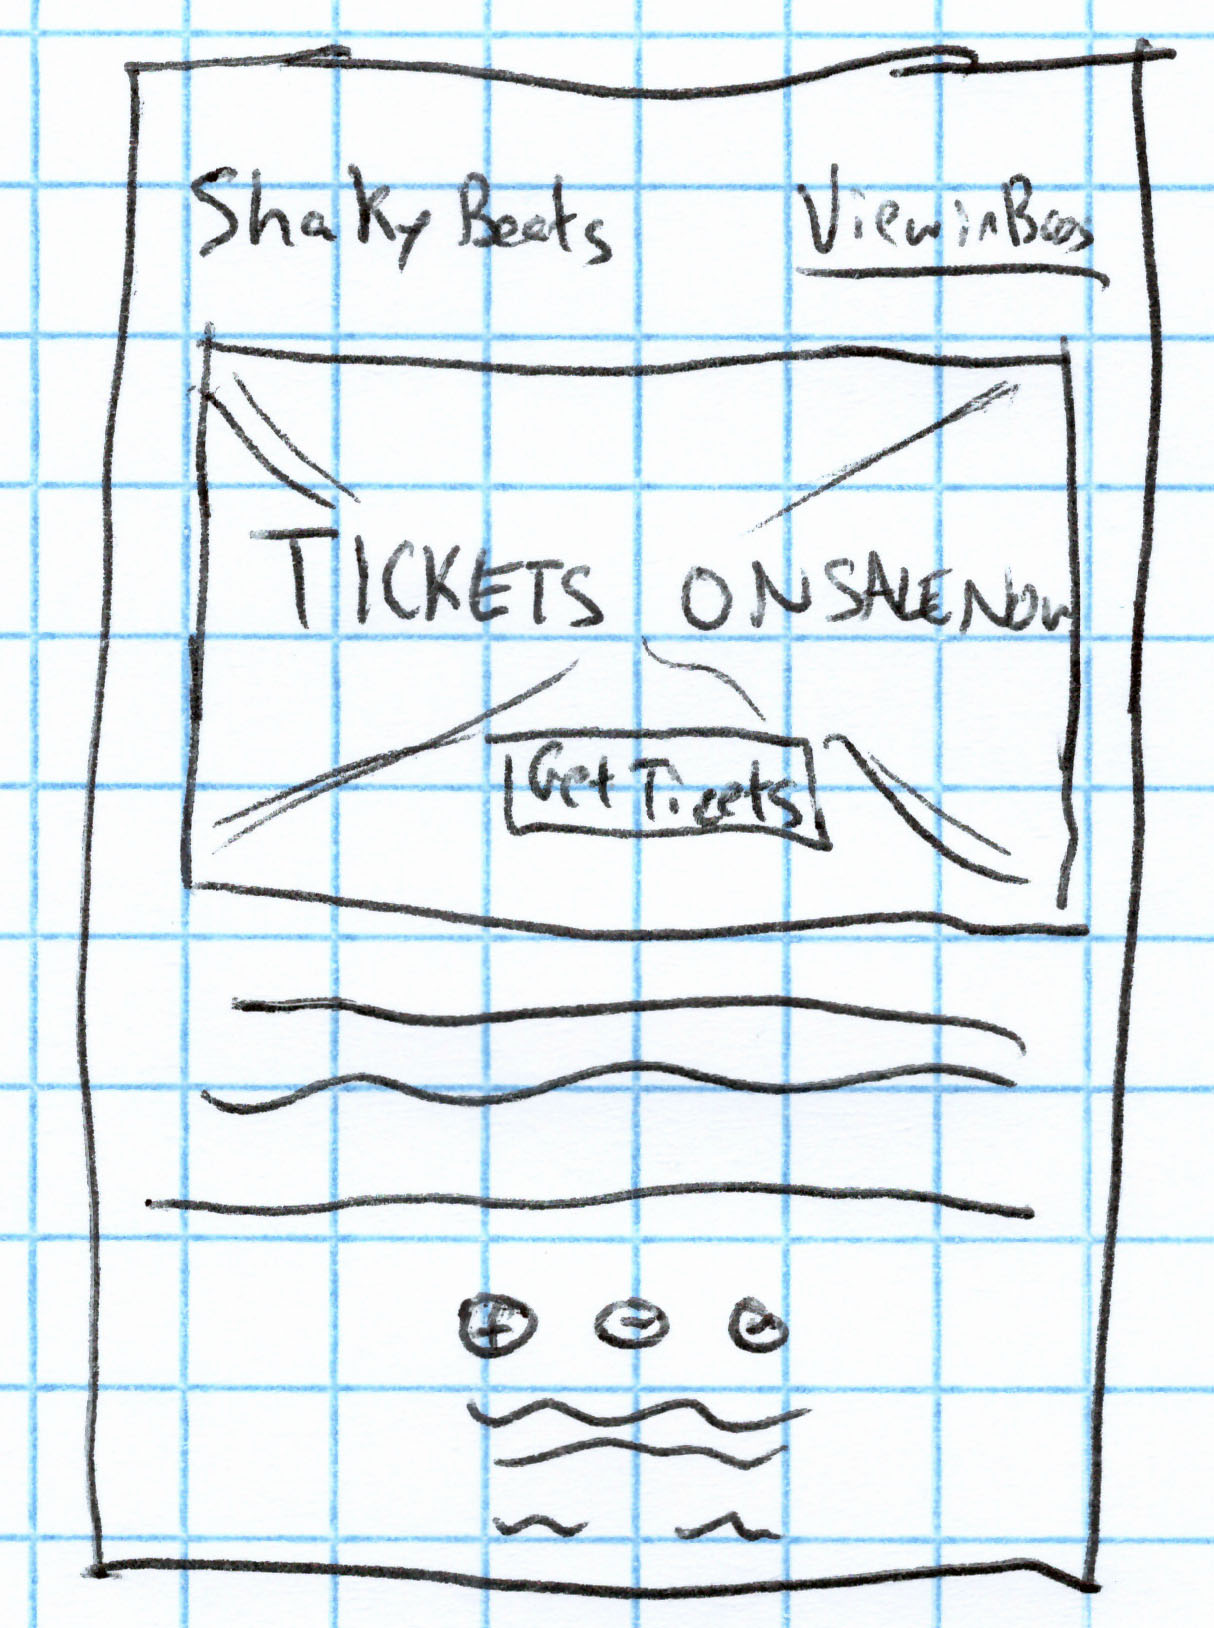 Shaky Beats
View in
TICKETS ON SALE NOW
Get Tickets